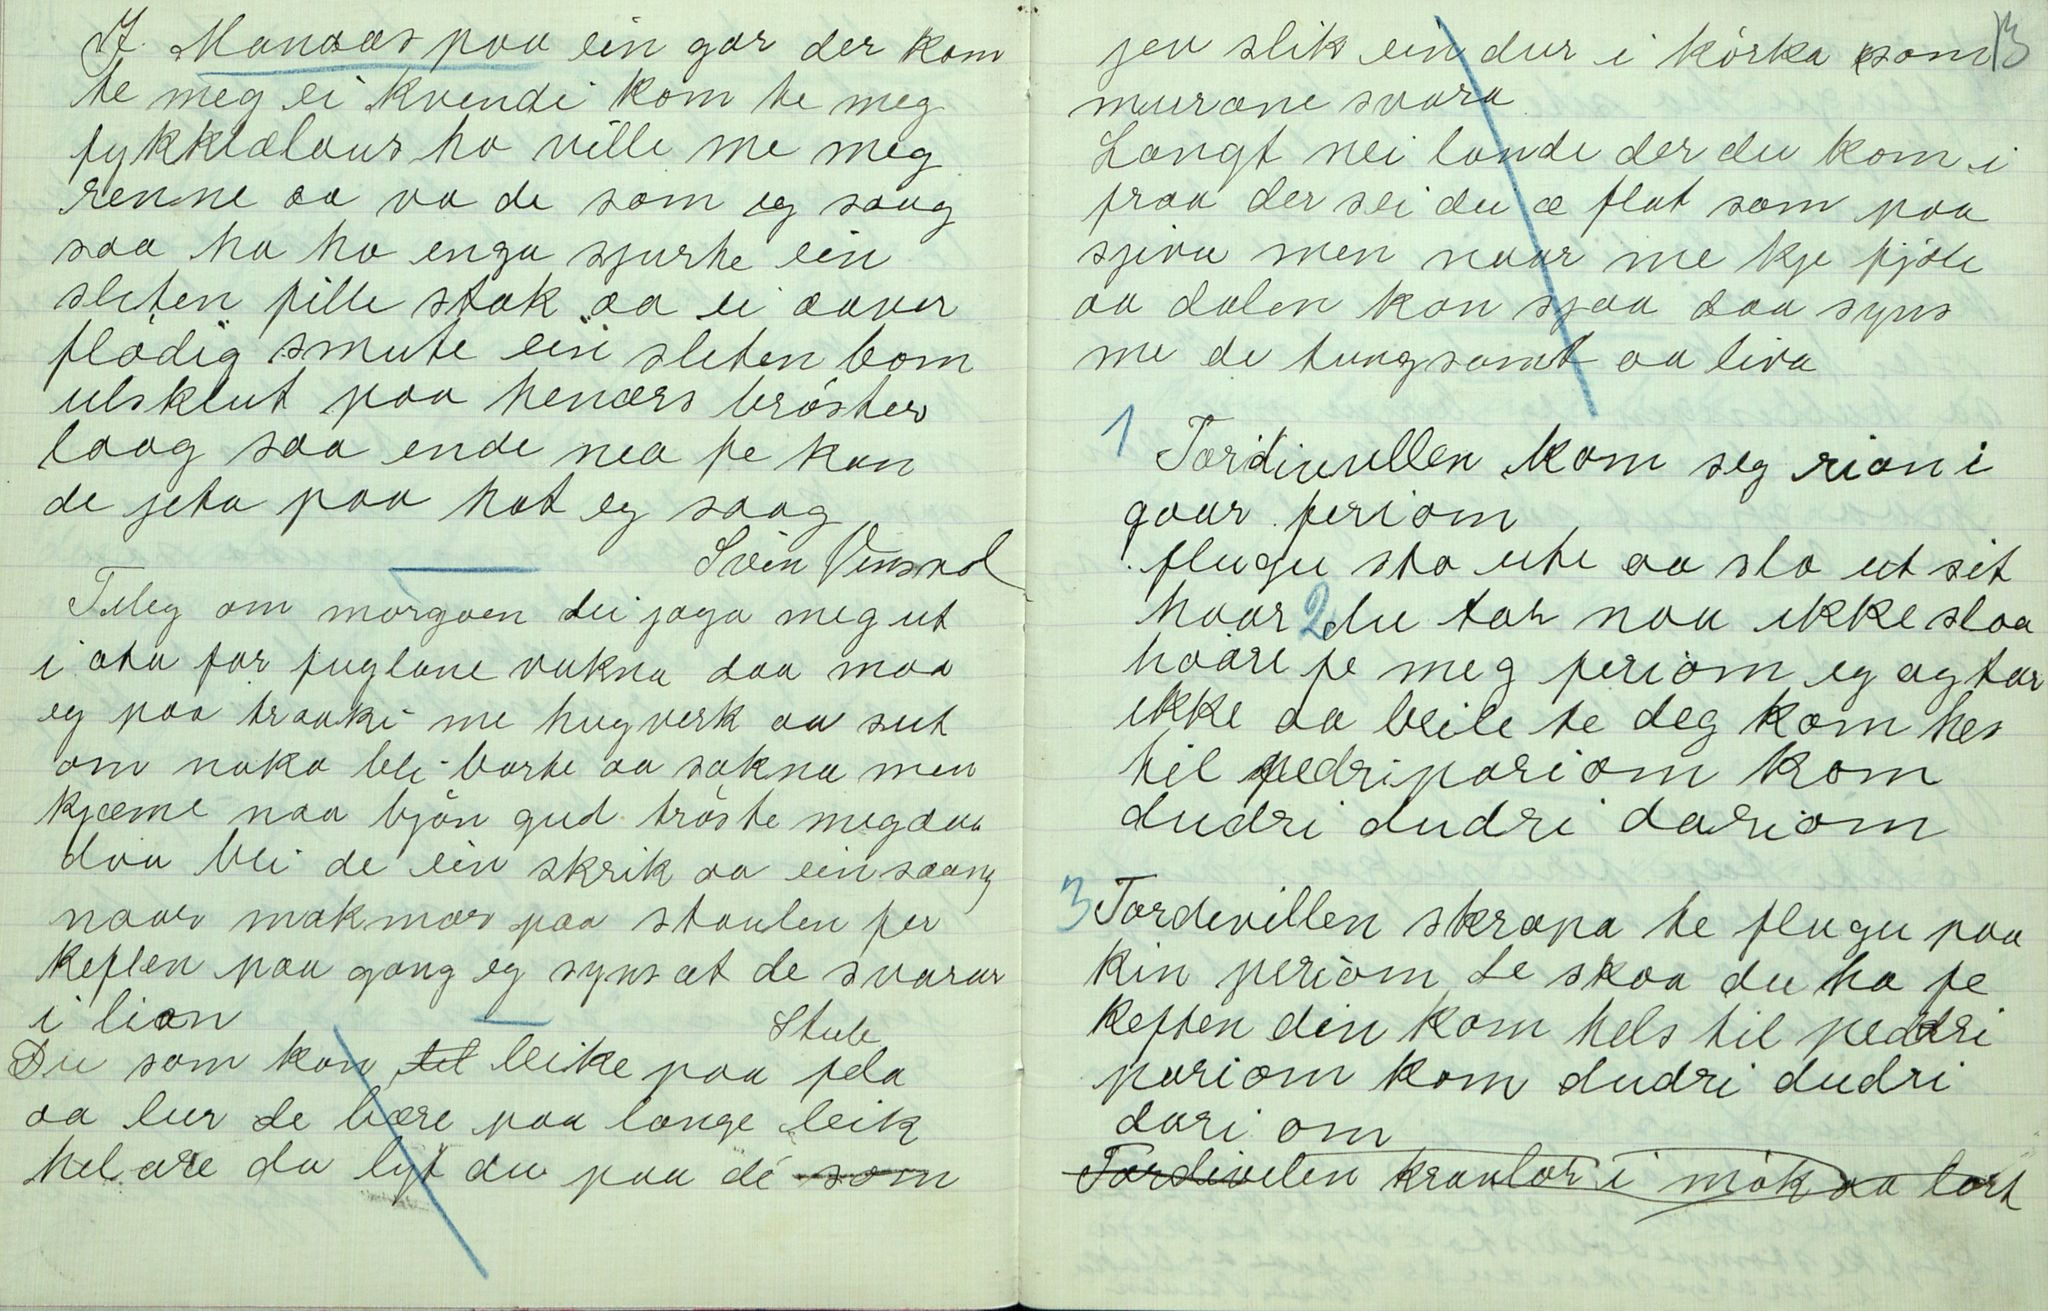 I Manaas paa ein gar der kom
te meg ei kvendi kom te meg
fykklælaus ho ville me meg
renne aa va de som eg saag
saa ha ho enga sjurte ein
sleten fille stak aa ei aaver
flødig smute ein sleten bom
ulsklut paa henærs brøster
laag saa ende nea fe kan
de jeta paa hot eg saag
Svein Vinsval
Tileg om morgoen dei jaga meg ut
i ota for fuglane vakna daa maa
eg paa traaki me hugverk aa sut
om noko bli borte aa sakna men
kjæme naa bjön gud tröste meg daa
daa bli de ein skrik aa ein saang
naar makmor paa staulen fer
keften paa gang eg syns at de svarar
i lian
Stule
Du som kan til leike paa fela
aa lur de bære paa lange leik
hel are da lyt du paa dé som
13
jev slik ein dur i kórka som
murane svara
Langt nei lande der du kom i
fraa der sei du æ flat som paa
sjiva men naar me kje fjöle
aa dalen kan sjaa daa syns
me de tungsamt aa liva
1 Tordivellen kom seg rian i
gaar feriom
flugu sto ute aa slo ut sit
haar 2 du tar naa ikke slaa
haare fe meg feriom eg ag tar
ikke aa beile te deg kom hes
til pedripariom kom
dudri dudri dariom
3 Tordivillen skrapa te flugu paa
kin feriom de skaa du ha fe
keften din kom hels til peddri
pariom kom dudri dudri
dari om
Tordivelen kravlar i mök aa lort